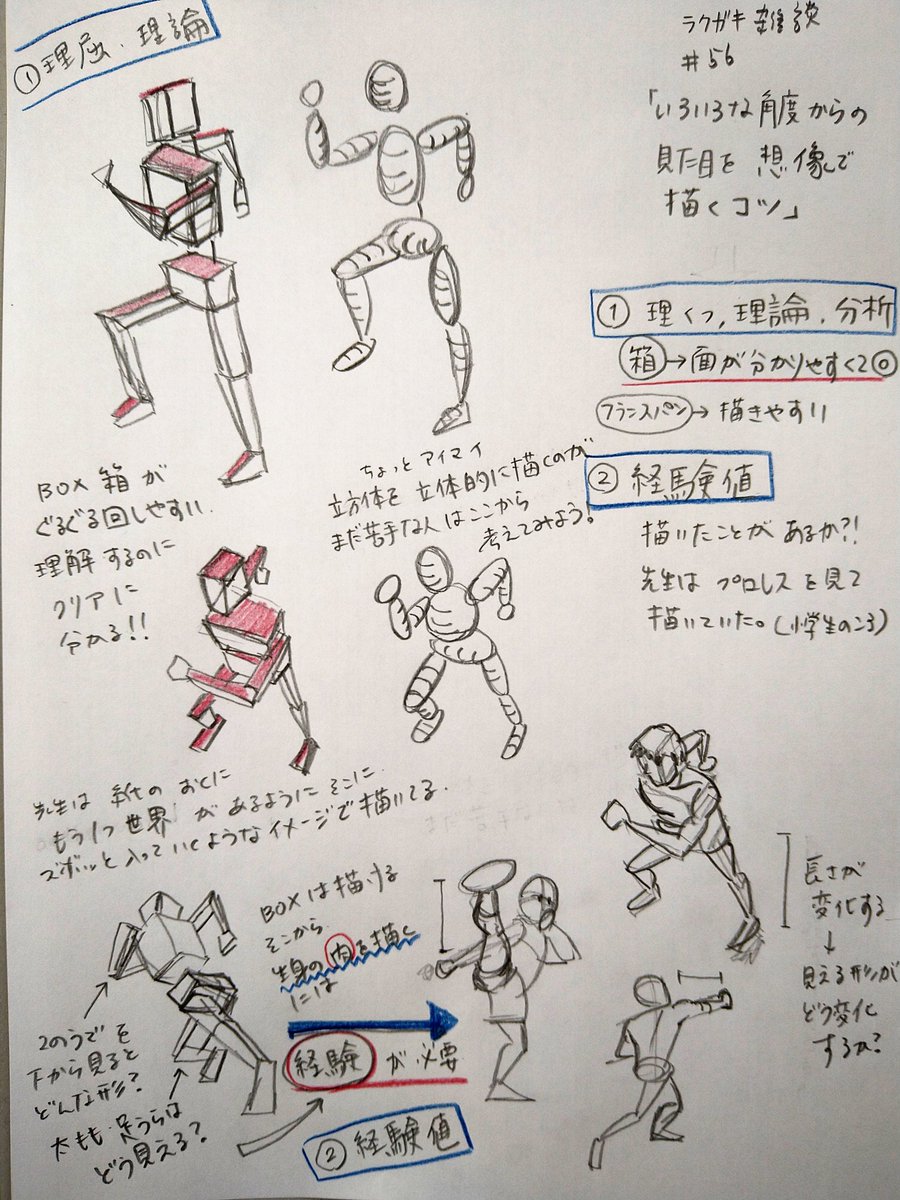 ①理屈・理論
ラクガキ雑談
#56
「いろいろな角度からの
見た目を想像で
描くコツ」
① 理くつ,理論.分析
箱→面が分かりやすくて◎
フランスパン→描きやすい
② 経験値
描いたことがあるか?!
先生はプロレスを見て
描いていた。(小学生のころ)
BOX 箱が
ぐるぐる回しやすい.
理解するのに
クリアに
分かる!!
ちょっとアイマイ
立方体を立体的に描くのが
まだ苦手な人はここから
考えてみよう!
先生は 紙の おくに
もう1つ世界 があるように そこに
ズボッと入っていくようなイメージで描いてる.
BOXは描ける
そこから
生身の肉を描く
には
経験が必要
② 経験値
2のうでを
下から見ると
どんな形?
太もも・足うらは
どう見える?
長さが
変化する
↓
見える形が
どう変化
するか?